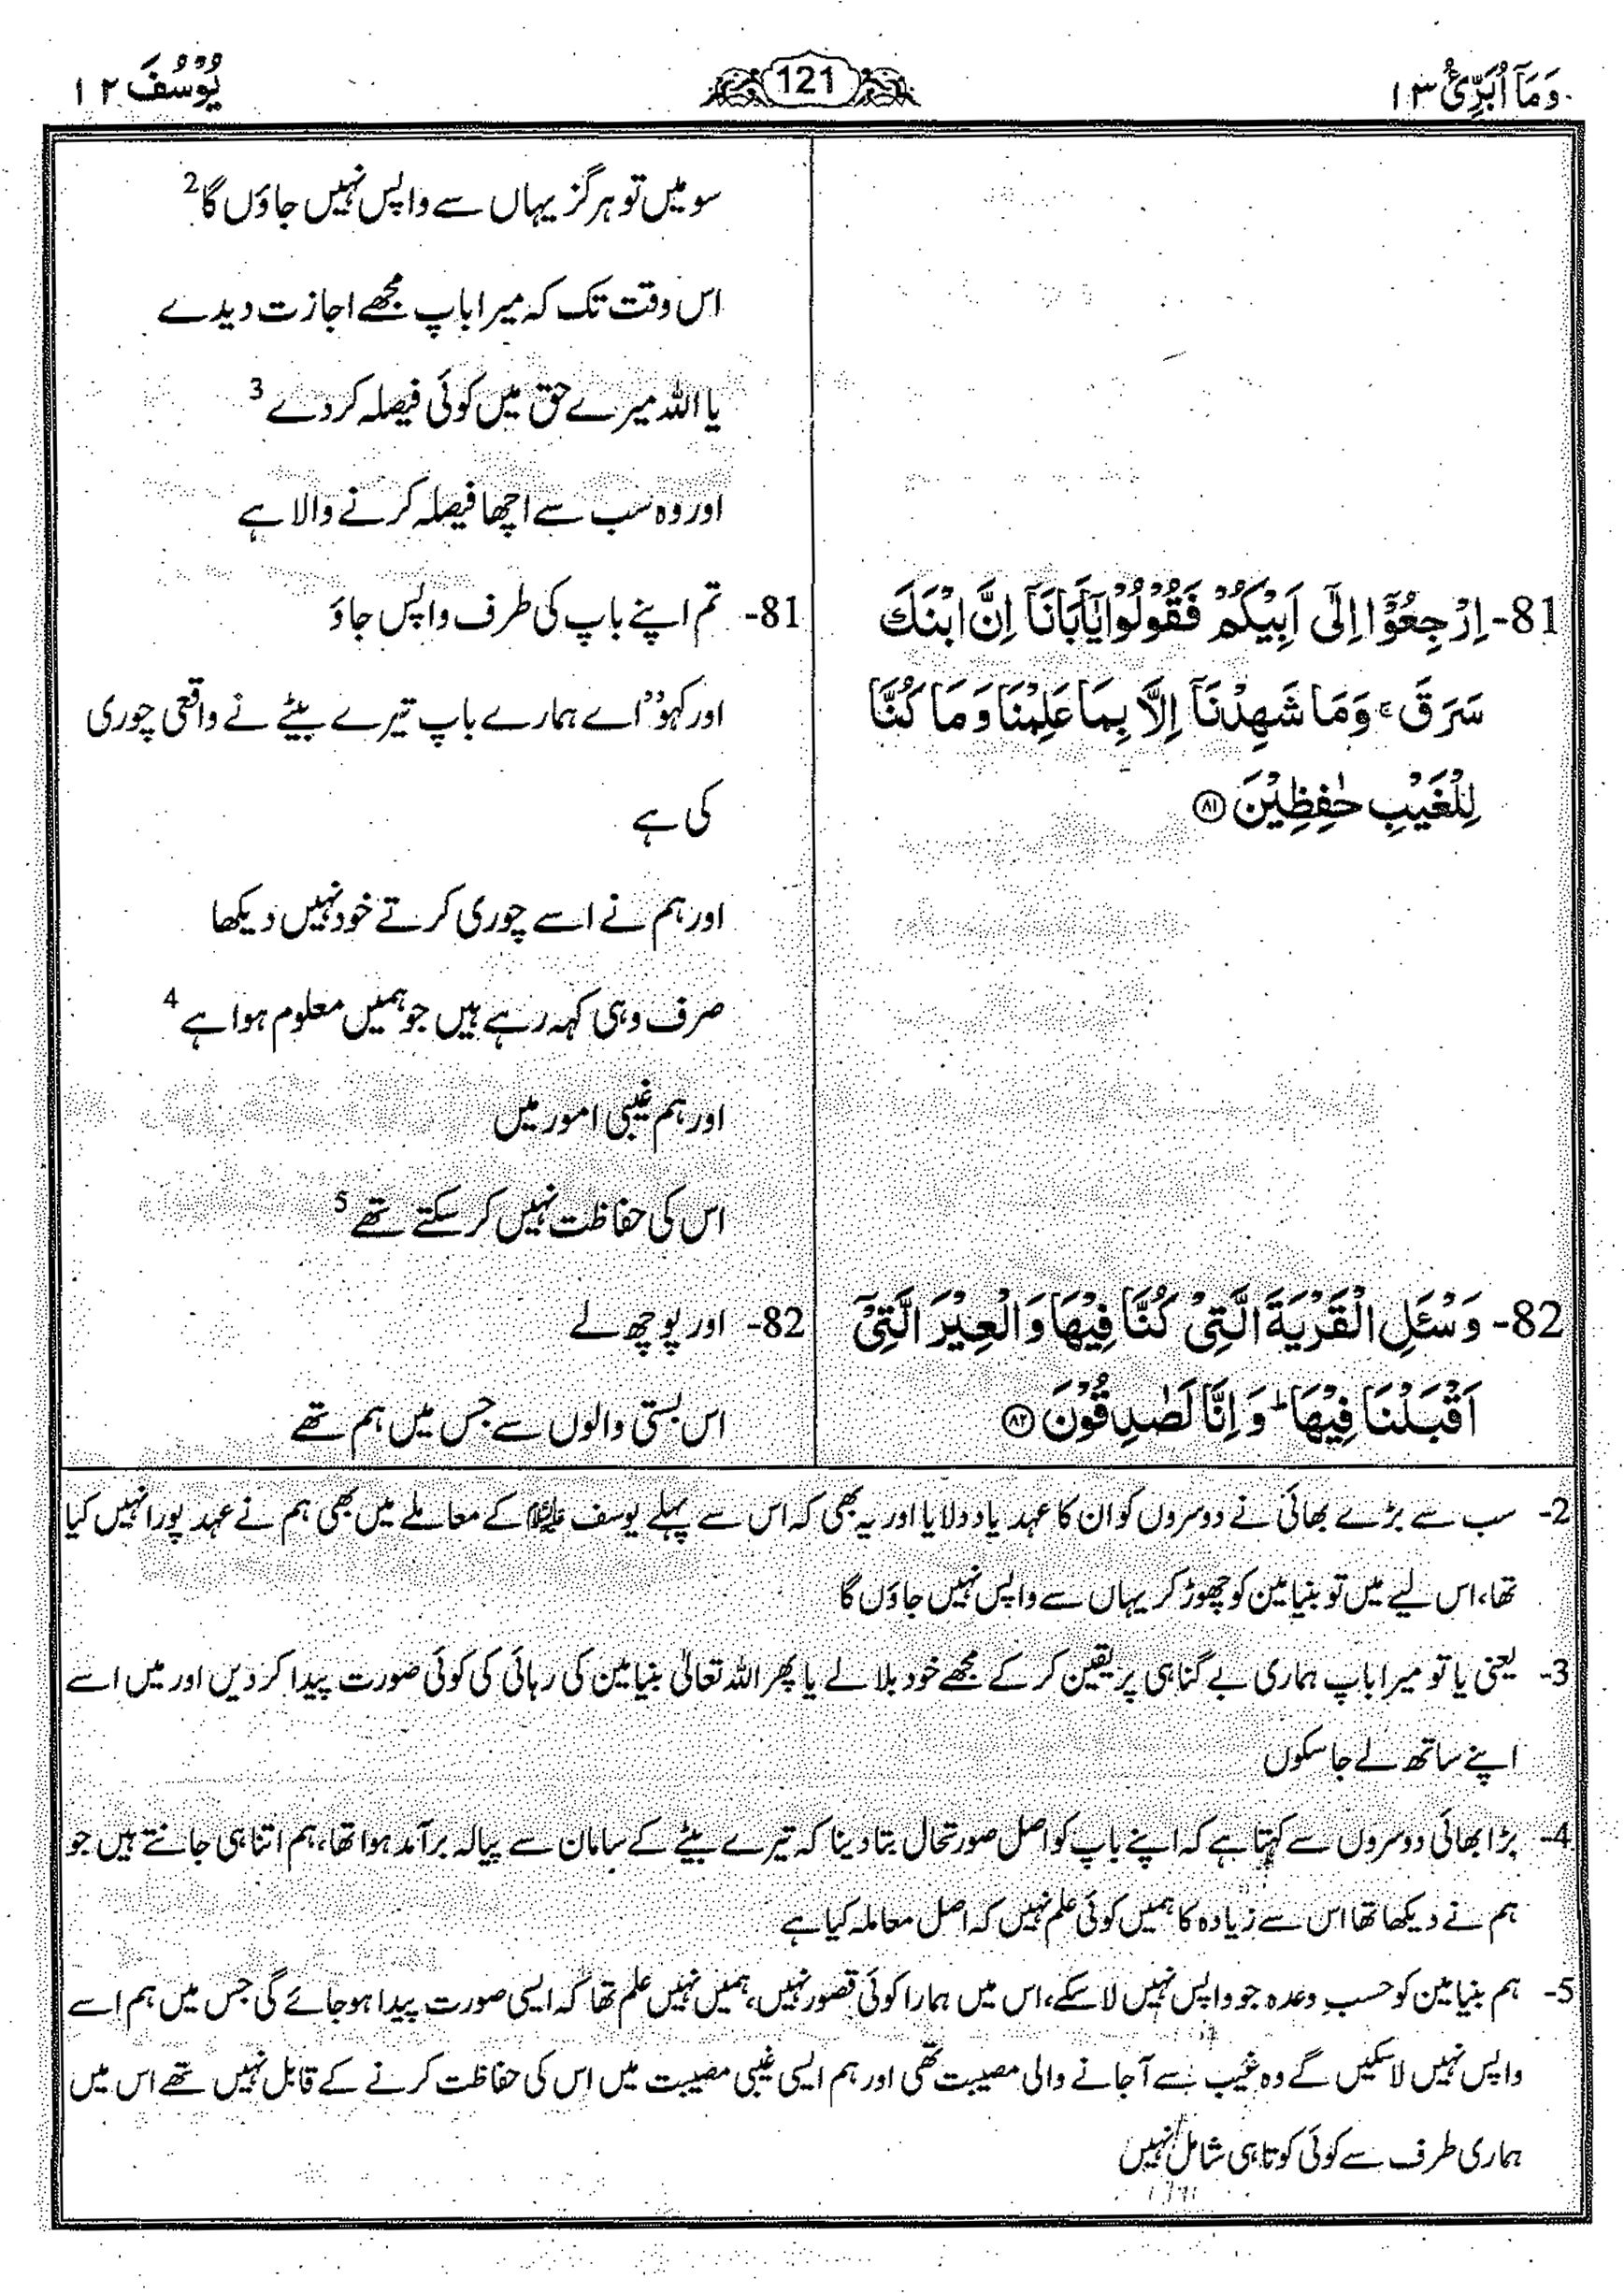 وَمَآ اُبَرِّئُ ١٣
121
يُوْسُفَ ١٢
سو میں تو ہرگز یہاں سے واپس نہیں جاؤں گا 2
اس وقت تک کہ میرا باپ مجھے اجازت دیدے
یا اللہ میرے حق میں کوئی فیصلہ کردے 3
اور وہ سب سے اچھا فیصلہ کرنے والا ہے
81- اِرْجِعُوْٓا اِلٰٓى اَبِيْكُمْ فَقُوْلُوْا يٰٓاَبَانَآ اِنَّ ابْنَكَ
سَرَقَ ۚ وَمَا شَهِدْنَآ اِلَّا بِمَا عَلِمْنَا وَمَا كُنَّا
لِلْغَيْبِ حٰفِظِيْنَ ۝٨١
81- تم اپنے باپ کی طرف واپس جاؤ
اور کہو ”اے ہمارے باپ تیرے بیٹے نے واقعی چوری
کی ہے
اور ہم نے اسے چوری کرتے خود نہیں دیکھا
صرف وہی کہہ رہے ہیں جو ہمیں معلوم ہوا ہے 4
اور ہم غیبی امور میں
اس کی حفاظت نہیں کر سکتے تھے 5
82- وَسْـَٔلِ الْقَرْيَةَ الَّتِيْ كُنَّا فِيْهَا وَالْعِيْرَ الَّتِيْٓ
اَقْبَلْنَا فِيْهَا ؕ وَاِنَّا لَصٰدِقُوْنَ ۝٨٢
82- اور پوچھ لے
اس بستی والوں سے جس میں ہم تھے
2- سب سے بڑے بھائی نے دوسروں کو ان کا عہد یاد دلایا اور یہ بھی کہ اس سے پہلے یوسف علیہ السلام کے معاملے میں بھی ہم نے عہد پورا نہیں کیا
تھا، اس لیے میں تو بنیامین کو چھوڑ کر یہاں سے واپس نہیں جاؤں گا
3- یعنی یا تو میرا باپ ہماری بے گناہی پر یقین کر کے مجھے خود بلا لے یا پھر اللہ تعالیٰ بنیامین کی رہائی کی کوئی صورت پیدا کر دیں اور میں اسے
اپنے ساتھ لے جا سکوں
4- بڑا بھائی دوسروں سے کہتا ہے کہ اپنے باپ کو اصل صورتحال بتا دینا کہ تیرے بیٹے کے سامان سے پیالہ برآمد ہوا تھا، ہم اتنا ہی جانتے ہیں جو
ہم نے دیکھا تھا اس سے زیادہ کا ہمیں کوئی علم نہیں کہ اصل معاملہ کیا ہے
5- ہم بنیامین کو حسبِ وعدہ جو واپس نہیں لا سکے، اس میں ہمارا کوئی قصور نہیں، ہمیں نہیں علم تھا کہ ایسی صورت پیدا ہو جائے گی جس میں ہم اسے
واپس نہیں لا سکیں گے وہ غیب سے آ جانے والی مصیبت تھی اور ہم ایسی غیبی مصیبت میں اس کی حفاظت کرنے کے قابل نہیں تھے اس میں
ہماری طرف سے کوئی کوتاہی شامل نہیں